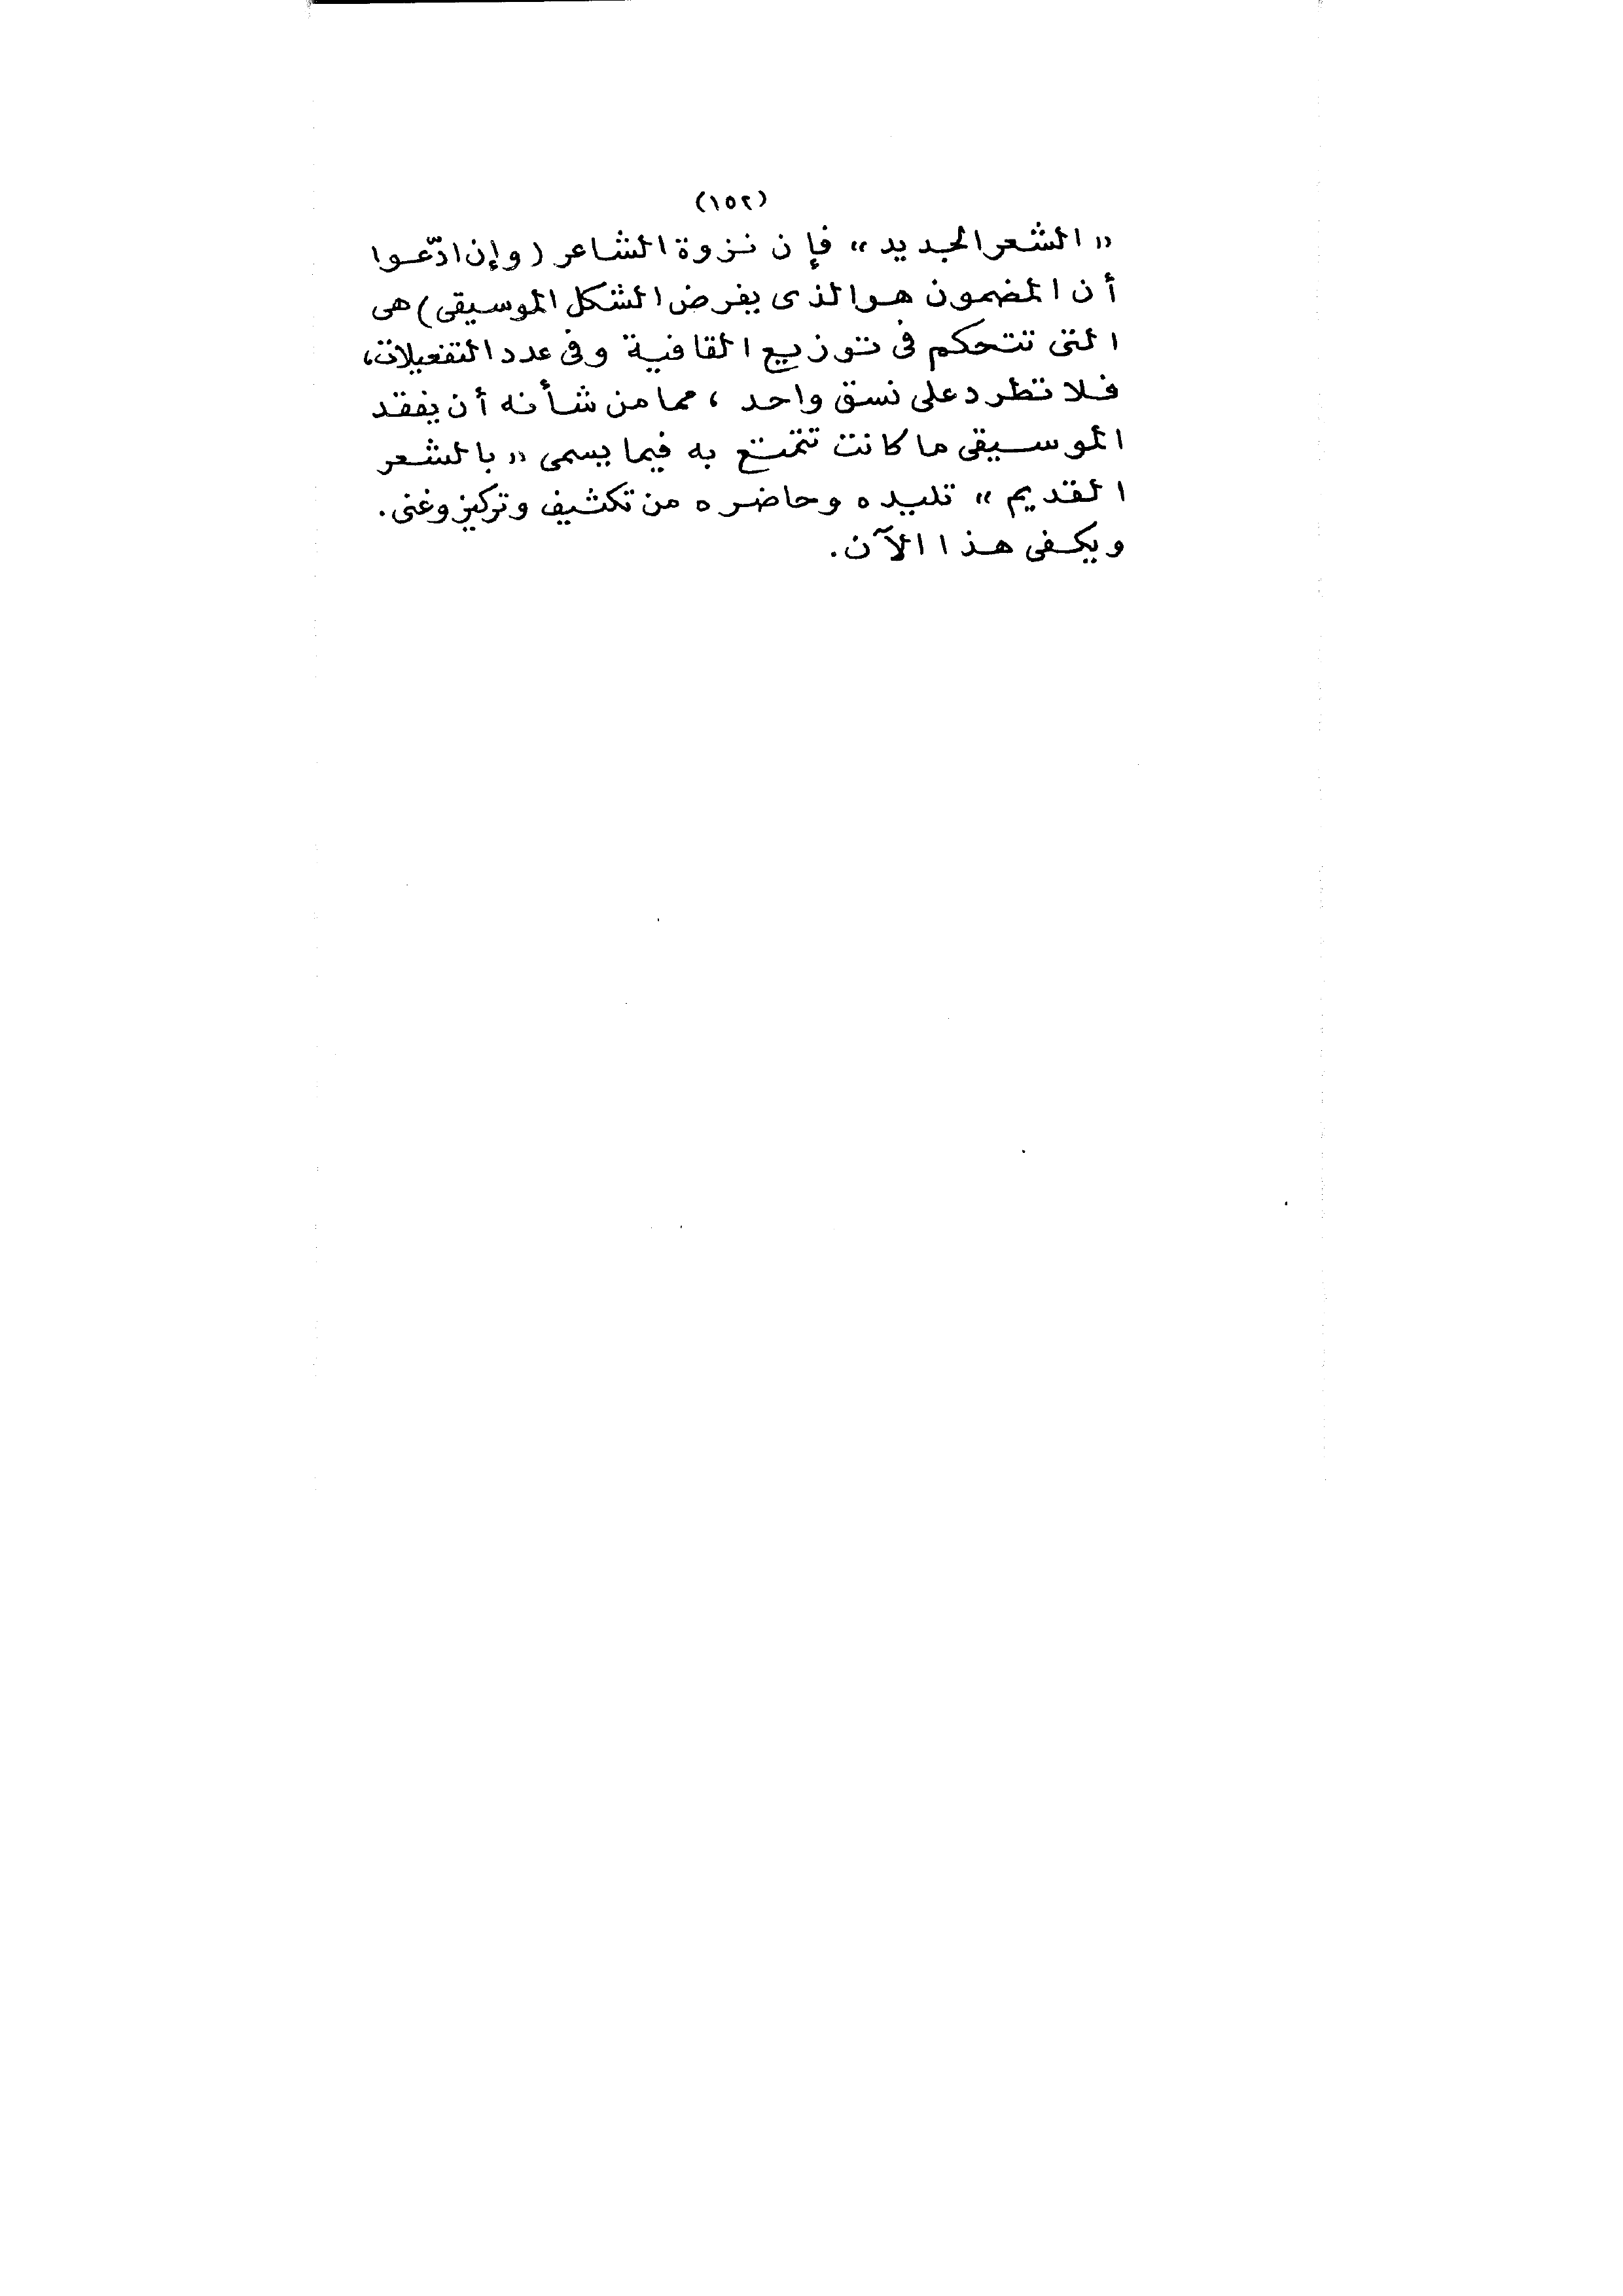 (١٥٢)
« الشعر الجديد » فإن نزوة الشاعر ( وإن ادّعوا
أن المضمون هو الذى يفرض الشكل الموسيقى ) هى
التى تتحكم فى توزيع القافية وفى عدد التفعيلات،
فلا تطرد على نسق واحد ، مما من شأنه أن يفقد
الموسيقى ما كانت تتمتع به فيما يسمى « بالشعر
القديم » تليده وحاضره من تكثيف وتركيز وغنى .
ويكفى هذا الآن .